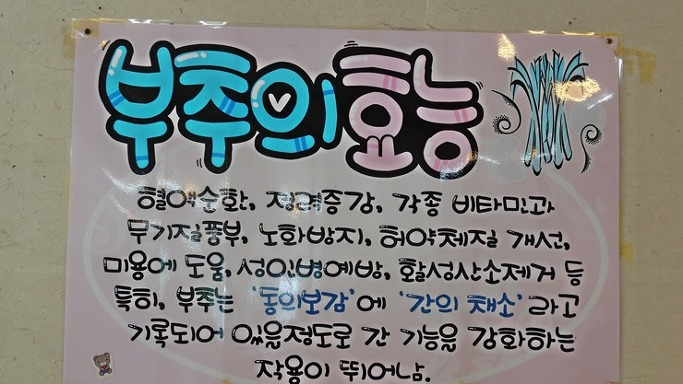 부추의 효능
혈액순환, 정력증강, 각종 비타민과
무기질풍부, 노화방지, 허약체질 개선,
미용에 도움, 성인병예방, 활성산소제거 등
특히, 부추는 '동의보감'에 '간의 채소'라고
기록되어 있을정도로 간 기능을 강화하는
작용이 뛰어남.